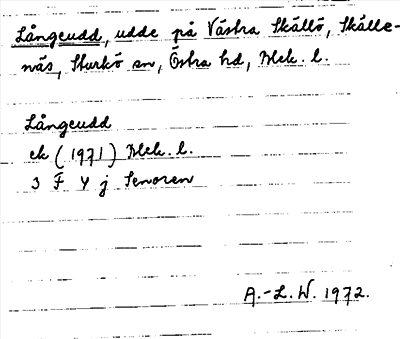 Långeudd, udde på Västra Skällö, Skälle-
näs, Sturkö sn, Östra hd, Blek. l.
Långeudd
ek (1971) Blek. l.
3 F 4 j Senoren
A.-L.W. 1972.